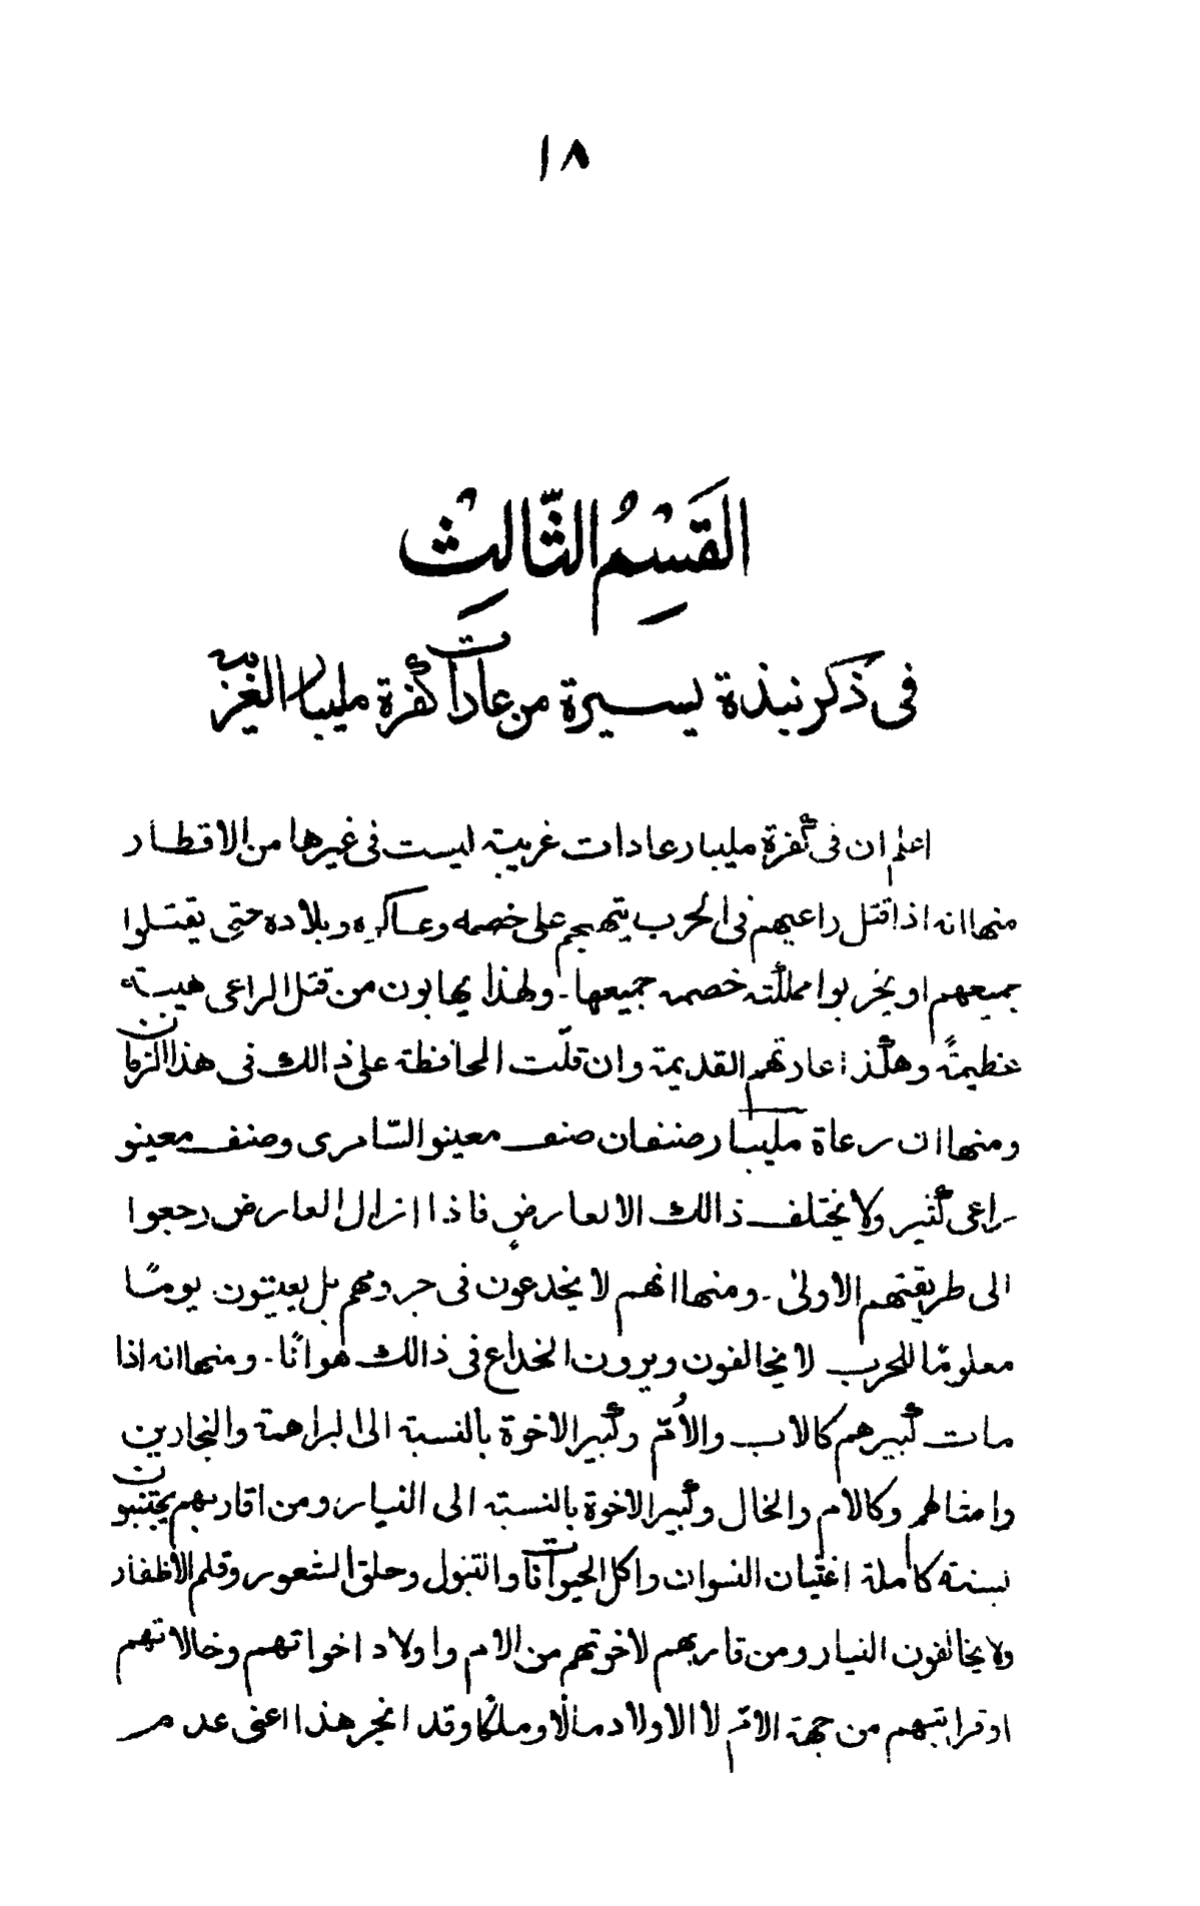 ١٨
القَسِمُ الثّالِث
فى ذكر نبذة يسيرة من عادات كفرة مليبار الغريبة
اعلم ان فى كفرة مليبار عادات غريبة ليست فى غيرها من الاقطار
منها انه اذا قتل راعيهم فى الحرب يتهجم على خصمه وعساكره وبلاده حتى يقتلوا
جميعهم او يخربوا مملكته خصمه جميعها ـ ولهذا يهابون من قتل الراعى هيبته
عظيمةً وهكذا عادتهم القديمة وان قلّت المحافظة على ذالك فى هذا الزمان
ومنها ان رعاة مليبار صنفان صنف معينو السّامرى وصنف معينو
راعى كشير ولا يختلف ذالك الا لعارض فاذا ازال العارض رجعوا
الى طريقتهم الاولىٰ ـ ومنها انهم لا يخدعون فى حروبهم بل يعيّنون يومًا
معلومًا للحرب لا يخالفون ويرون الخداع فى ذالك هوانًا ـ ومنها انه اذا
مات كبيرهم كالاب والأُمّ وكبير الاخوة بالنسبة الى البراهمة والنجارين
وامثالهم وكالام والخال وكبير الاخوة بالنسبة الى النيار ومن اقاربهم يجتنبون
سنة كاملة اغشيان النسوان واكل الحيوانات والتنبول وحلق الشعور وقلم الاظفار
ولا يخالفون النيار ومن قاربهم لاخوتهم من الام واولاد اخواتهم وخالاتهم
او قرابتهم من جهة الامّ لا الاولاد مالا وملكا وقد انجر هذا اعنى عدم